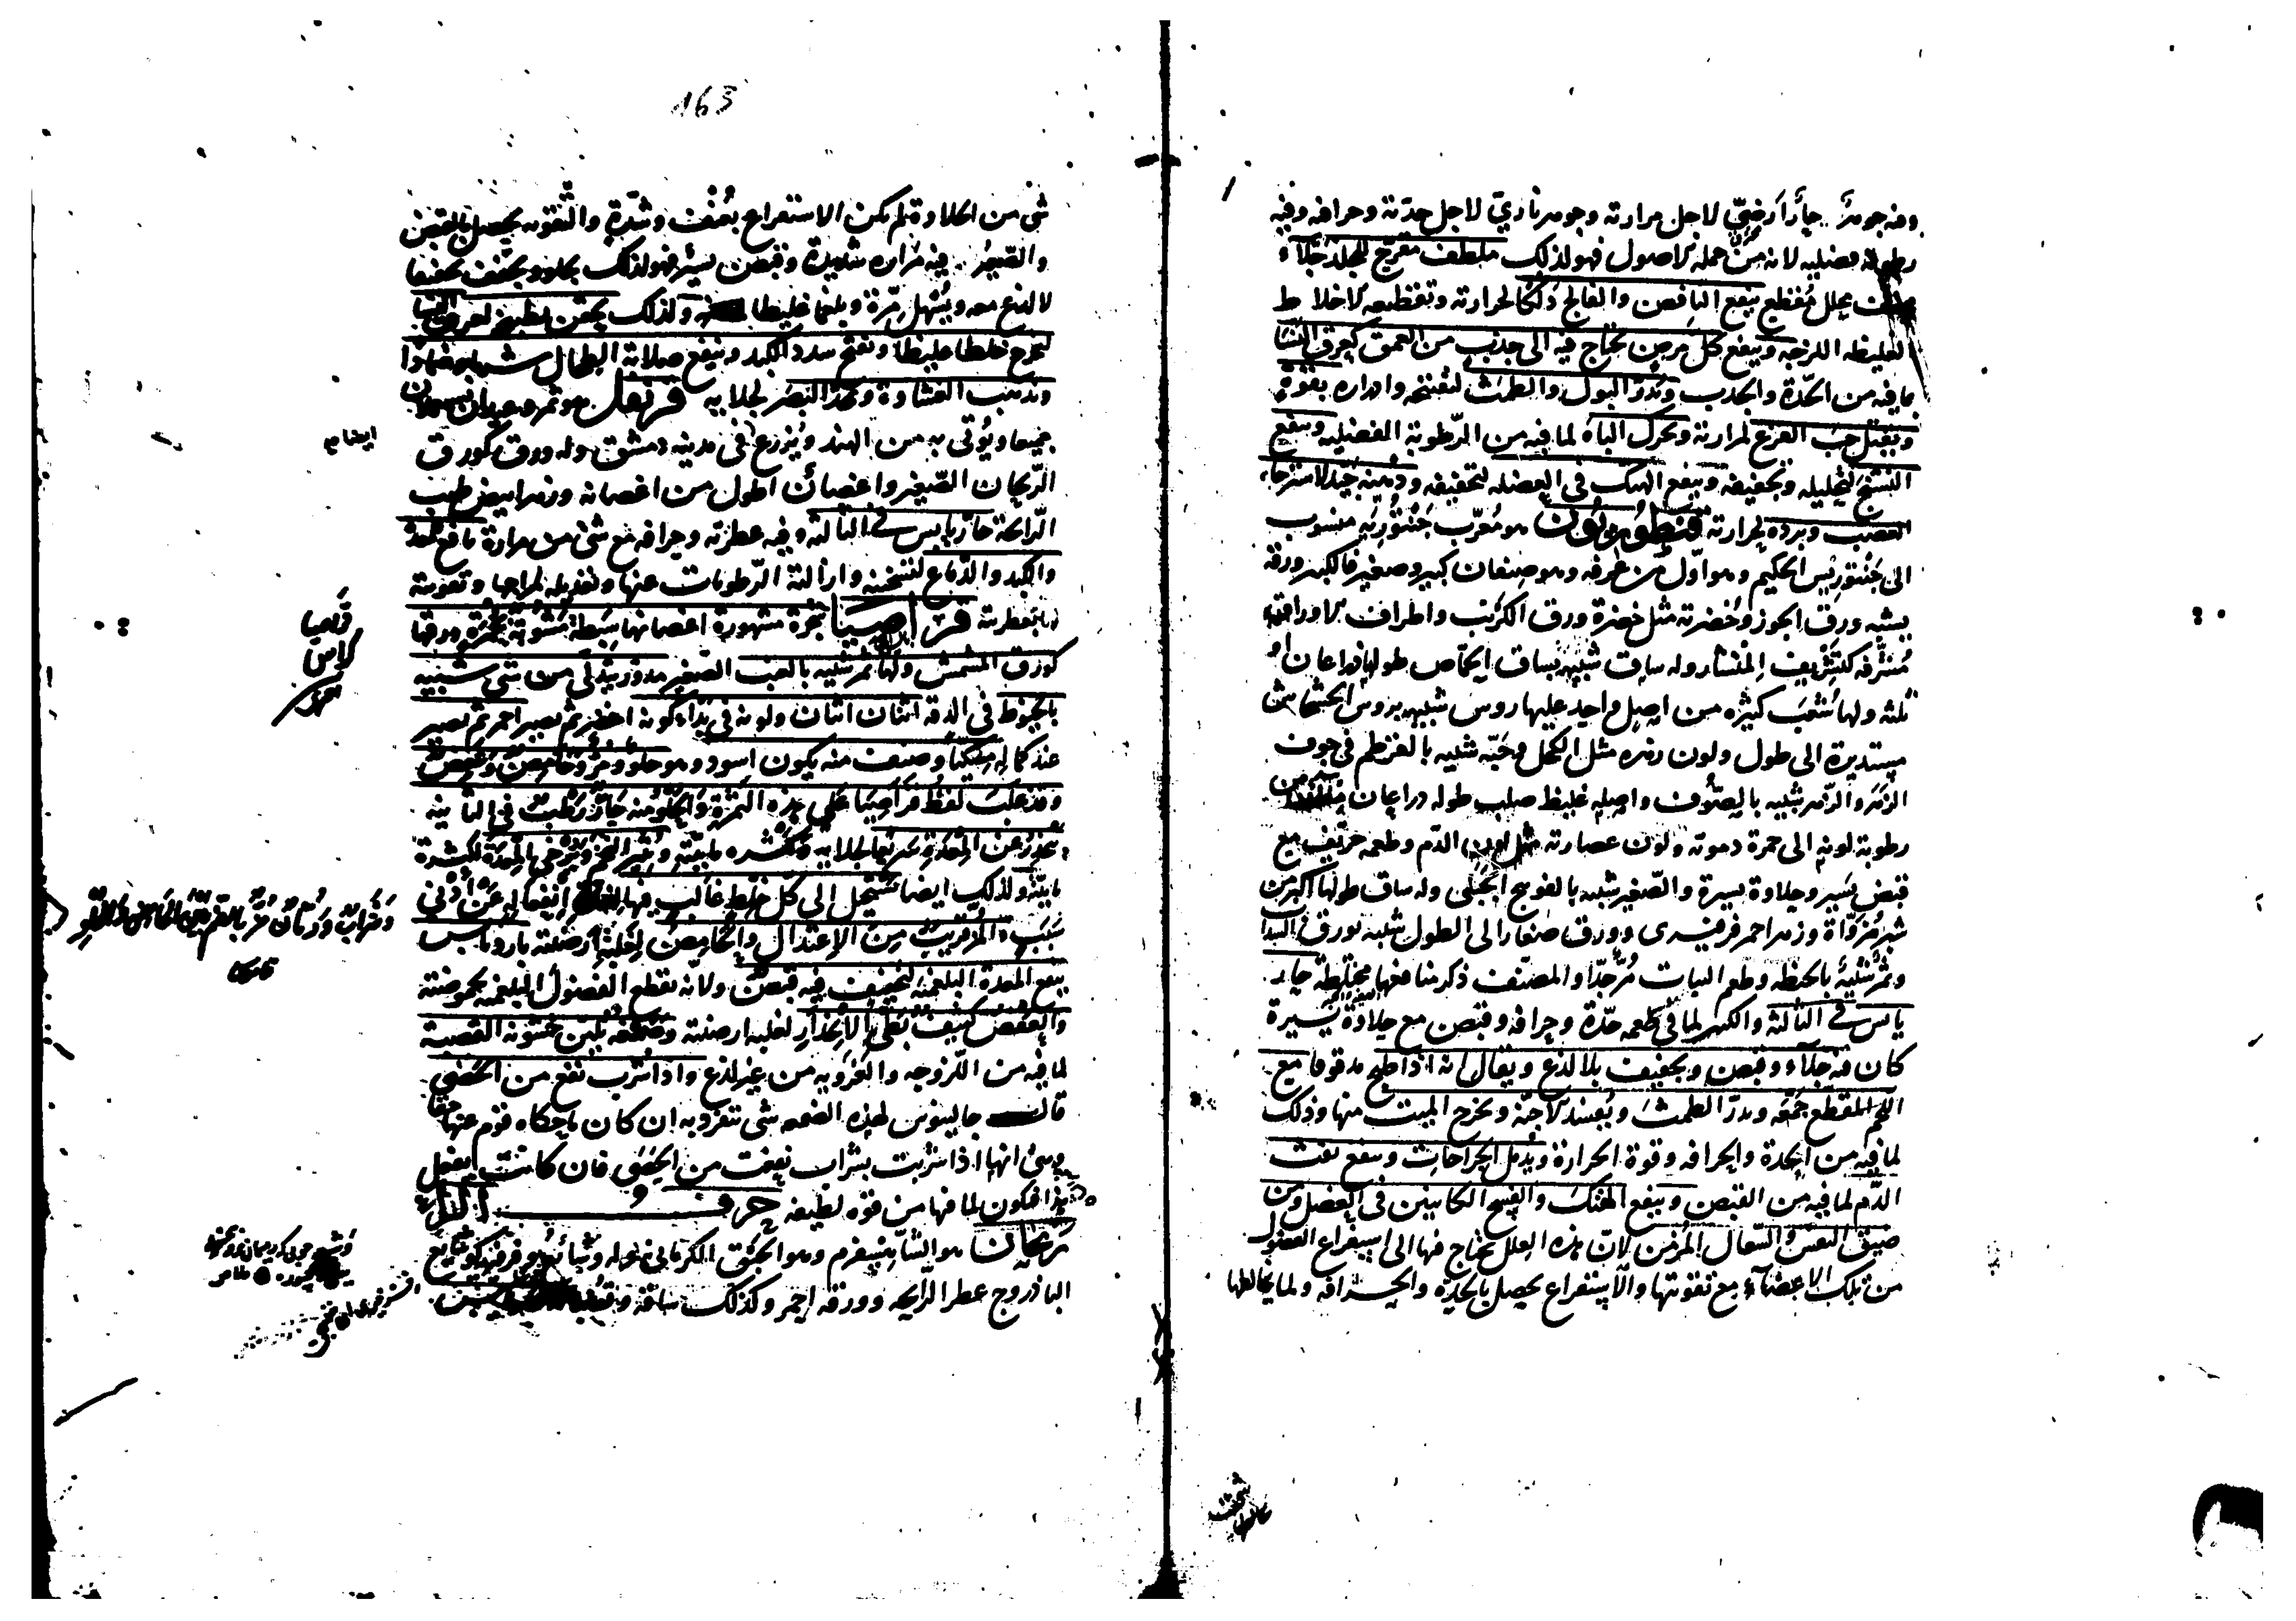 وفيه جوهر حار أرضي لاجل مرارته وجوهر ناري لاجل حدته وحرافة وفيه
رطوبة فضلية لانه من جملة الاصول فهو لذلك ملطف مقرح للجلد جلاء
محلل مقطع ينفع النافض والفالج دلكا لحرارته وتقطيعه الاخلاط
الغليظة اللزجة وينفع كل مرض يحتاج فيه الى جذب من العمق كعرق النسا
بما فيه من الحدة والجذب ويدر البول والطمث لتفتيحه وادراره بقوة
ويقتل حب القرع لمرارته ويحرك الباه لما فيه من الرطوبة الفضلية وينفع
التشنج لتحليله وتجفيفه وينفع الهتك في العضله لتجفيفه ودهنه جيد لاسترخاء
العصب وبرده لحرارته قنطوريون هو معرب جنتوريه منسوب
الى جنتوريس الحكيم وهو اول من عرفه وهو صنفان كبير وصغير فالكبير ورقه
يشبه ورق الجوز وخضرته مثل خضرة ورق الكرنب واطراف الاوراق
مشرفه كتشريف المنشار وله ساق شبيه بساق الحماض طولها ذراعان او
ثلثة ولها شعب كثيره من اصل واحد عليها روس شبيه بروس الخشخاش
مستديرة الى طول ولون زهره مثل الكحل وحبه شبيه بالقرطم في جوف
الزهر والزهر شبيه بالصوف واصله غليظ صلب طوله ذراعان
رطوبة لونه الى حمرة دموية ولون عصارته مثل لون الدم وطعمه حريف مع
قبض يسير وحلاوة يسيرة والصغير شبيه بالفوتنج الجبلي وله ساق طولها اكبر من
شبر مزواة وزهر احمر فرفيري وورق صغار الى الطول شبيه بورق السداب
وثمر شبيه بالحنطه وطعم النبات مر جدا والمصنف ذكر منافعها مختلطة حار
يابس في الثالثة والكبير لما في طعمه حدة وحرافة وقبض مع حلاوة يسيرة
كان فيه جلاء وقبض وتجفيف بلا لذع ويقال انه اذا طبخ مدقوقا مع
اللحم المقطع جمعه ويدر الطمث ويفسد الاجنة ويخرج الميت منها وذلك
لما فيه من الحدة والحرافه وقوة الحرارة ويدمل الجراحات وينفع نفث
الدم لما فيه من القبض وينفع الهتك والفسخ الكاينين في العضل ومن
ضيق النفس والسعال المزمن لان هذه العلل يحتاج فيها الى استفراغ الفضول
من تلك الاعضاء مع تقويتها والاستفراغ يحصل بالحدة والحرافه ولما يخالطها
163
شي من الحلاوة لم يكن الاستفراغ بعنف وشدة والتقوية يحصل بالقبض
والصغير فيه مرارة شديدة وقبض يسير فهو لذلك يجلو ويجفف تجفيفا
لا لذع معه ويسهل مرة وبلغما غليظا ولذلك يحقن بطبيخه لعرق النسا
ليخرج خلطا غليظا ويفتح سدد الكبد وينفع صلابة الطحال
ويذهب الغشاوة ويحد البصر لجلايه قرنفل هو ثمر وعيدان
جميعا ويؤتى به من الهند ويزرع في مدينه دمشق وله ورق كورق
الريحان الصغير واغصان اطول من اغصانه وزهر ابيض طيب
الرايحة حار يابس في الثالثة وفيه عطرية وحرافة مع شي من مرارة نافع للمعدة
والكبد والدماغ لتسخينه وازالته الرطوبات عنها وتعديله لمزاجها وتقويته
لها بعطريته قراصيا شجرة مشهورة اغصانها سبطة مشوبة بحمرة وورقها
كورق المشمش ولها ثمر شبيه بالعنب الصغير مدور يتدلى من شي شبيه
بالخيوط في الدقة اثنان اثنان ولونه في بداء كونه اخضر ثم يصير احمر ثم يصير
عند كماله مسكيا وصنف منه يكون اسود وهو حلو ومر وحامض وعفص
وقد غلب لفظ قراصيا على هذه الثمرة والحلو منه حار رطب في الثانية
ينحدر عن المعدة سريعا لجلايه وكثرة مايئته ويرخي المعدة لكثرة
مايئته ولذلك ايضا يستحيل الى كل خلط غالب فيها انفعاله عن ادنى
سبب المز قريب من الاعتدال والحامض لغلبة ارضيته بارد يابس
ينفع المعدة البلغمية لتجفيف فيه قبض ولانه يقطع الفضول البلغمية بحموضته
والعفص كثيف بطي الانحدار لغلبة ارضيته وصمغه يلين خشونة القصبة
لما فيه من اللزوجة والغروية من غير لذع واذا شرب نفع من الحصى
قال جالينوس لهذه الصمغه شي تتفرد به ان كان ما حكاه قوم عنها حقا
وهي انها اذا شربت بشراب نفعت من الحصى فان كانت تفعل
هذا فيكون لما فيها من قوة لطيفه حرف الراء
ريحان هو الشاهسفرم وهو الحبق الكرماني
الباذروج عطر الرايحه وورقه احمر وكذلك ساقه
ايضا
قراصيا
كراس